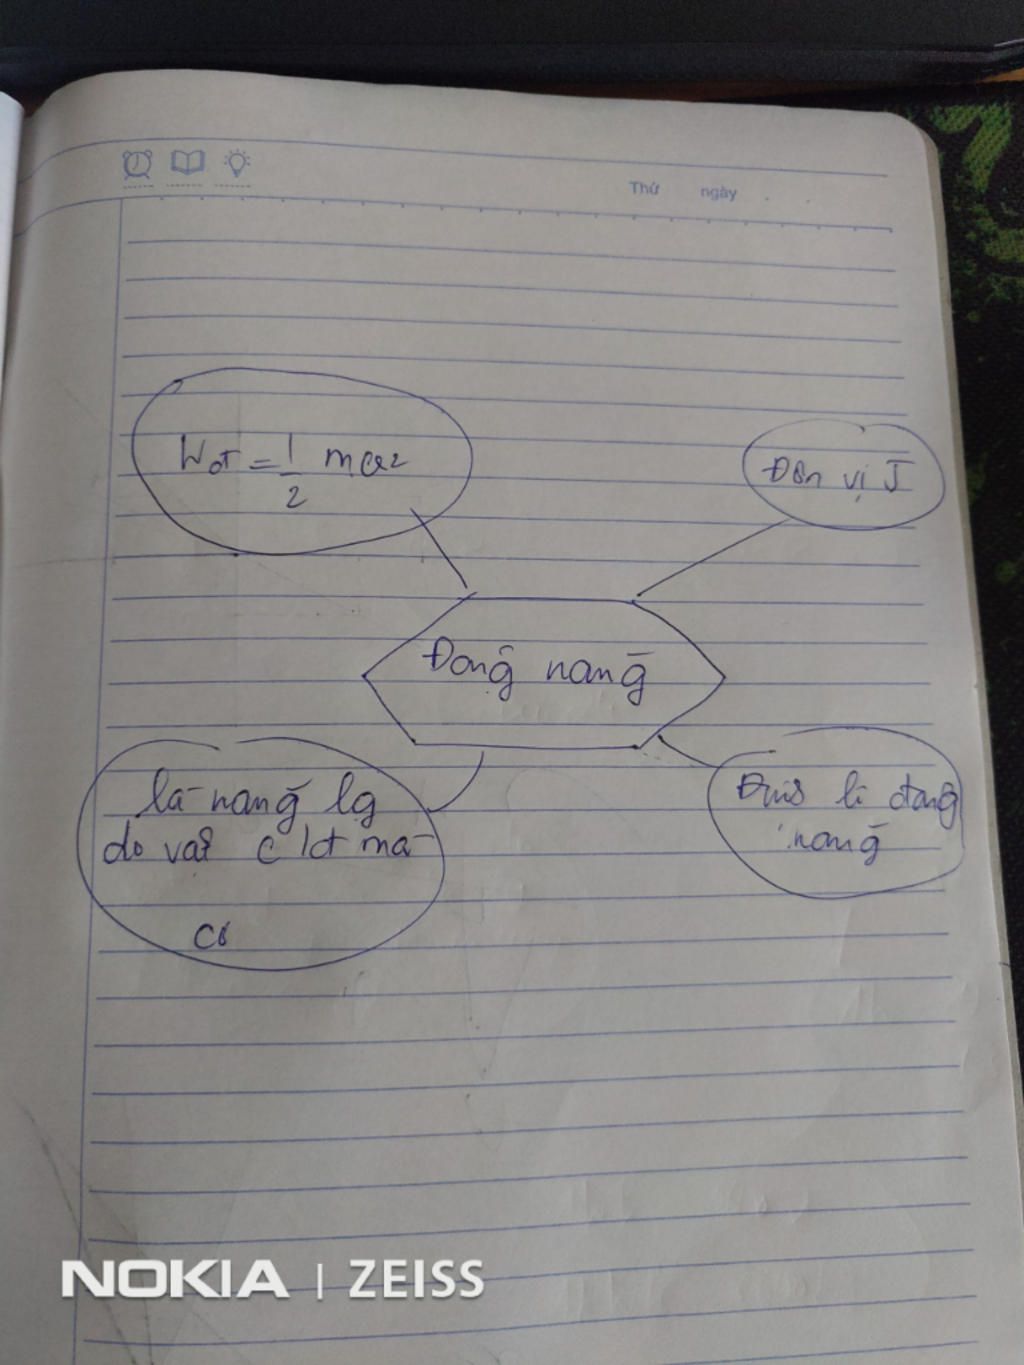 Thứ ngày
Wđ = 1/2 mv2
Đơn vị J
Động năng
là năng lg
do vật c lđ mà
có
Định lí động
năng
NOKIA | ZEISS